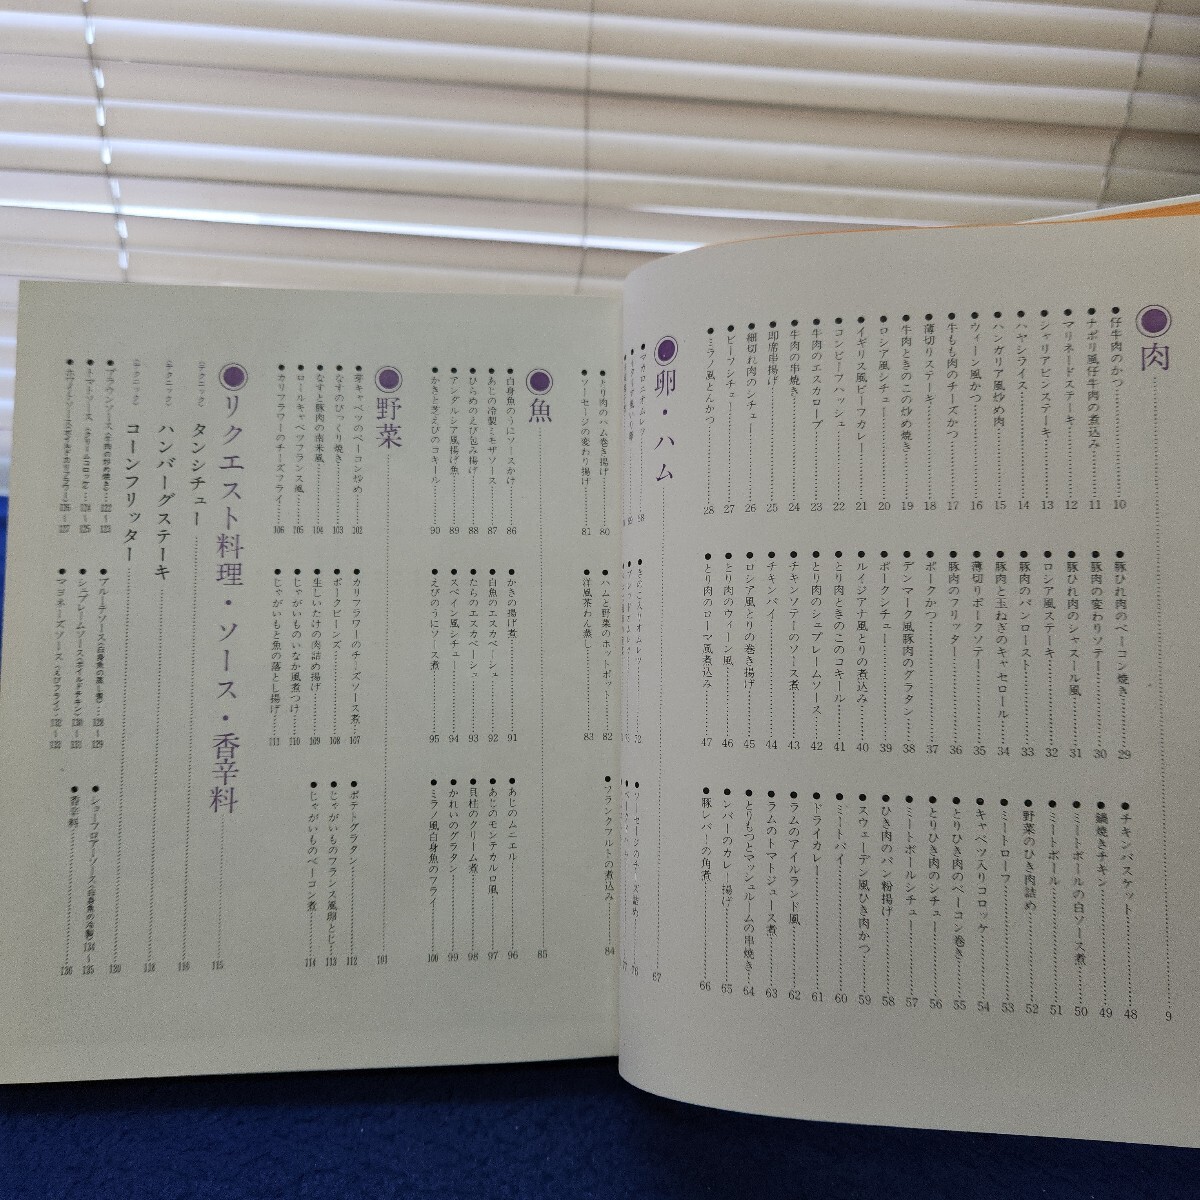 肉……9
仔牛肉のかつ……10
ナポリ風仔牛肉の煮込み……11
マリネードステーキ……12
シャリアピンステーキ……13
ハヤシライス……14
ハンガリア風炒め肉……15
ウィーン風かつ……16
牛もも肉のチーズかつ……17
薄切りステーキ……18
牛肉ときのこの炒め焼き……19
ロシア風シチュー……20
イギリス風ビーフカレー……21
コンビーフハッシュ……22
牛肉のエスカロープ……23
牛肉の串焼き……24
即席串揚げ……25
細切れ肉のシチュー……26
ビーフシチュー……27
ミラノ風とんかつ……28
豚ひれ肉のベーコン焼き……29
豚肉の変わりソテー……30
豚ひれ肉のシャスール風……31
ロシア風ステーキ……32
豚肉のパンロースト……33
豚肉と玉ねぎのキャセロール……34
薄切りポークソテー……35
豚肉のフリッター……36
ポークかつ……37
デンマーク風豚肉のグラタン……38
ポークシチュー……39
ルイジアナ風とりの煮込み……40
とり肉ときのこのコキール……41
とり肉のシュプレームソース……42
チキンソテーのソース煮……43
チキンパイ……44
ロシア風とりの巻き揚げ……45
とり肉のウィーン風……46
とり肉のローマ風煮込み……47
チキンバスケット……48
鍋焼きチキン……49
ミートボールの白ソース煮……50
ミートボール……51
野菜のひき肉詰め……52
ミートローフ……53
キャベツ入りコロッケ……54
とりひき肉のベーコン巻き……55
とりひき肉のシチュー……56
ミートボールシチュー……57
ひき肉のパン粉揚げ……58
スウェーデン風ひき肉かつ……59
ミートパイ……60
ドライカレー……61
ラムのアイルランド風……62
ラムのトマトジュース煮……63
とりもつとマッシュルームの串焼き……64
レバーのカレー揚げ……65
豚レバーの角煮……66
卵・ハム……67
マカロニオムレツ……68
きのこ入りオムレツ……72
ソーセージのチーズ詰め……76
とり肉のハム巻き揚げ……80
ソーセージの変わり揚げ……81
ハムと野菜のホットポット……82
洋風茶わん蒸し……83
フランクフルトの煮込み……84
魚……85
白身魚のうにソースかけ……86
あじの冷製ミモザソース……87
ひらめのえび包み揚げ……88
アンダルシア風揚げ魚……89
かきと芝えびのコキール……90
かきの揚げ煮……91
白魚のエスカベーシュ……92
たらのエスカベーシュ……93
スペイン風シチュー……94
えびのうにソース煮……95
あじのムニエル……96
あじのモンテカルロ風……97
貝柱のクリーム煮……98
かれいのグラタン……99
ミラノ風白身魚のフライ……100
野菜……101
芽キャベツのベーコン炒め……102
なすのびっくり焼き……103
なすと豚肉の南米風……104
ロールキャベツフランス風……105
カリフラワーのチーズフライ……106
カリフラワーのチーズソース煮……107
ポークビーンズ……108
生しいたけの肉詰め揚げ……109
じゃがいものいなか風煮つけ……110
じゃがいもと魚の落とし揚げ……111
ポテトグラタン……112
じゃがいものフランス風卵とじ……113
じゃがいものベーコン煮……114
リクエスト料理・ソース・香辛料……115
(テクニック) タンシチュー……116
(テクニック) ハンバーグステーキ……118
(テクニック) コーンフリッター……120
ブラウンソース(牛肉の炒め焼き)……122〜123
トマトソース(クリームコロッケ)……124〜125
ホワイトソース(ボイルドカリフラワー)……126〜127
ブルーテソース(白身魚の蒸し煮)……128〜129
シュプレームソース(ボイルドチキン)……130〜131
マヨネーズソース(えびフライ)……132〜133
ショーフロアーソース(白身魚の冷製)……134〜135
香辛料……136